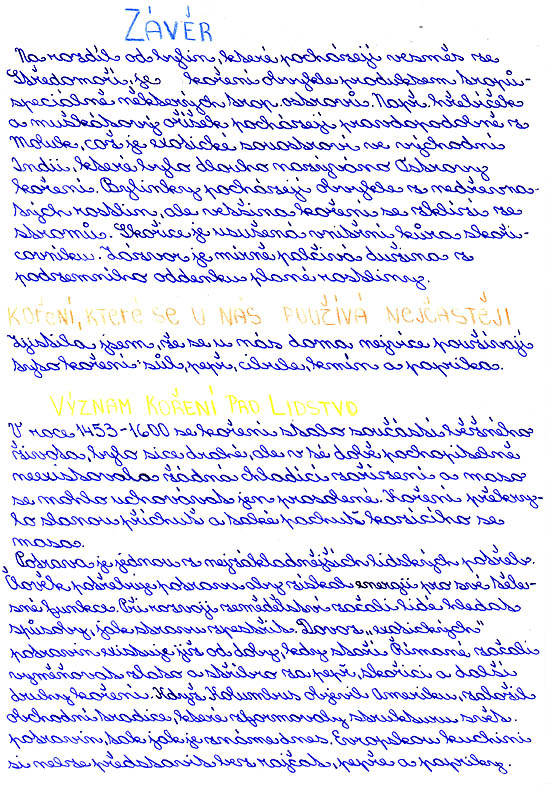 ZÁVĚR
Na rozdíl od bylin, které pocházejí vesměs ze
Středomoří, je koření obvykle produktem tropů-
speciálně některých trop. ostrovů. Např. hřebíček
a muškátový oříšek pocházejí pravdopodobně z
Moluk, což je exotické souostroví ve východní
Indii, které bylo dlouho nazýváno Ostrovy
koření. Bylinky pocházejí obvykle z nedřevna-
tých rostlin, ale většina koření se sklízí ze
stromů. Skořice je usušená vnitřní kůra skoři-
covníku. Zázvor je mírně palčivá dužina z
podzemního oddenku plané rostliny.
KOŘENÍ, KTERÉ SE U NÁS POUŽÍVÁ NEJČASTĚJI
Zjistila jsem, že se u nás doma nejvíce používají
tyto koření: sůl, pepř, cibule, kmín a paprika.
VÝZNAM KOŘENÍ PRO LIDSTVO
V roce 1453-1600 se koření stalo součástí běžného
života, bylo sice drahé, ale v té době pochopitelně
neexistovala žádná chladící zařízení a maso
se mohlo uchovávat jen prosolené. Koření překry-
lo slanou příchuť a také pachuť kazícího se
masa.
Potrava je jednou z nejzákladnějších lidských potřeb.
Člověk potřebuje potravu aby získal energii pro své těles-
né funkce. Při rozvoji zemědělství začali lidé hledat
způsoby, jak stravu zpestřit. Dovoz „exotických“
potravin existuje již od doby, kdy staří Římané začali
vyměňovat zlato a stříbro za pepř, skořici a další
druhy koření. Když Kolumbus objevil Ameriku, založil
obchodní tradice, které zformovaly strukturu svět.
potravin, tak jak je známe dnes. Evropskou kuchini
si nelze představit bez rajčat, pepře a papriky.